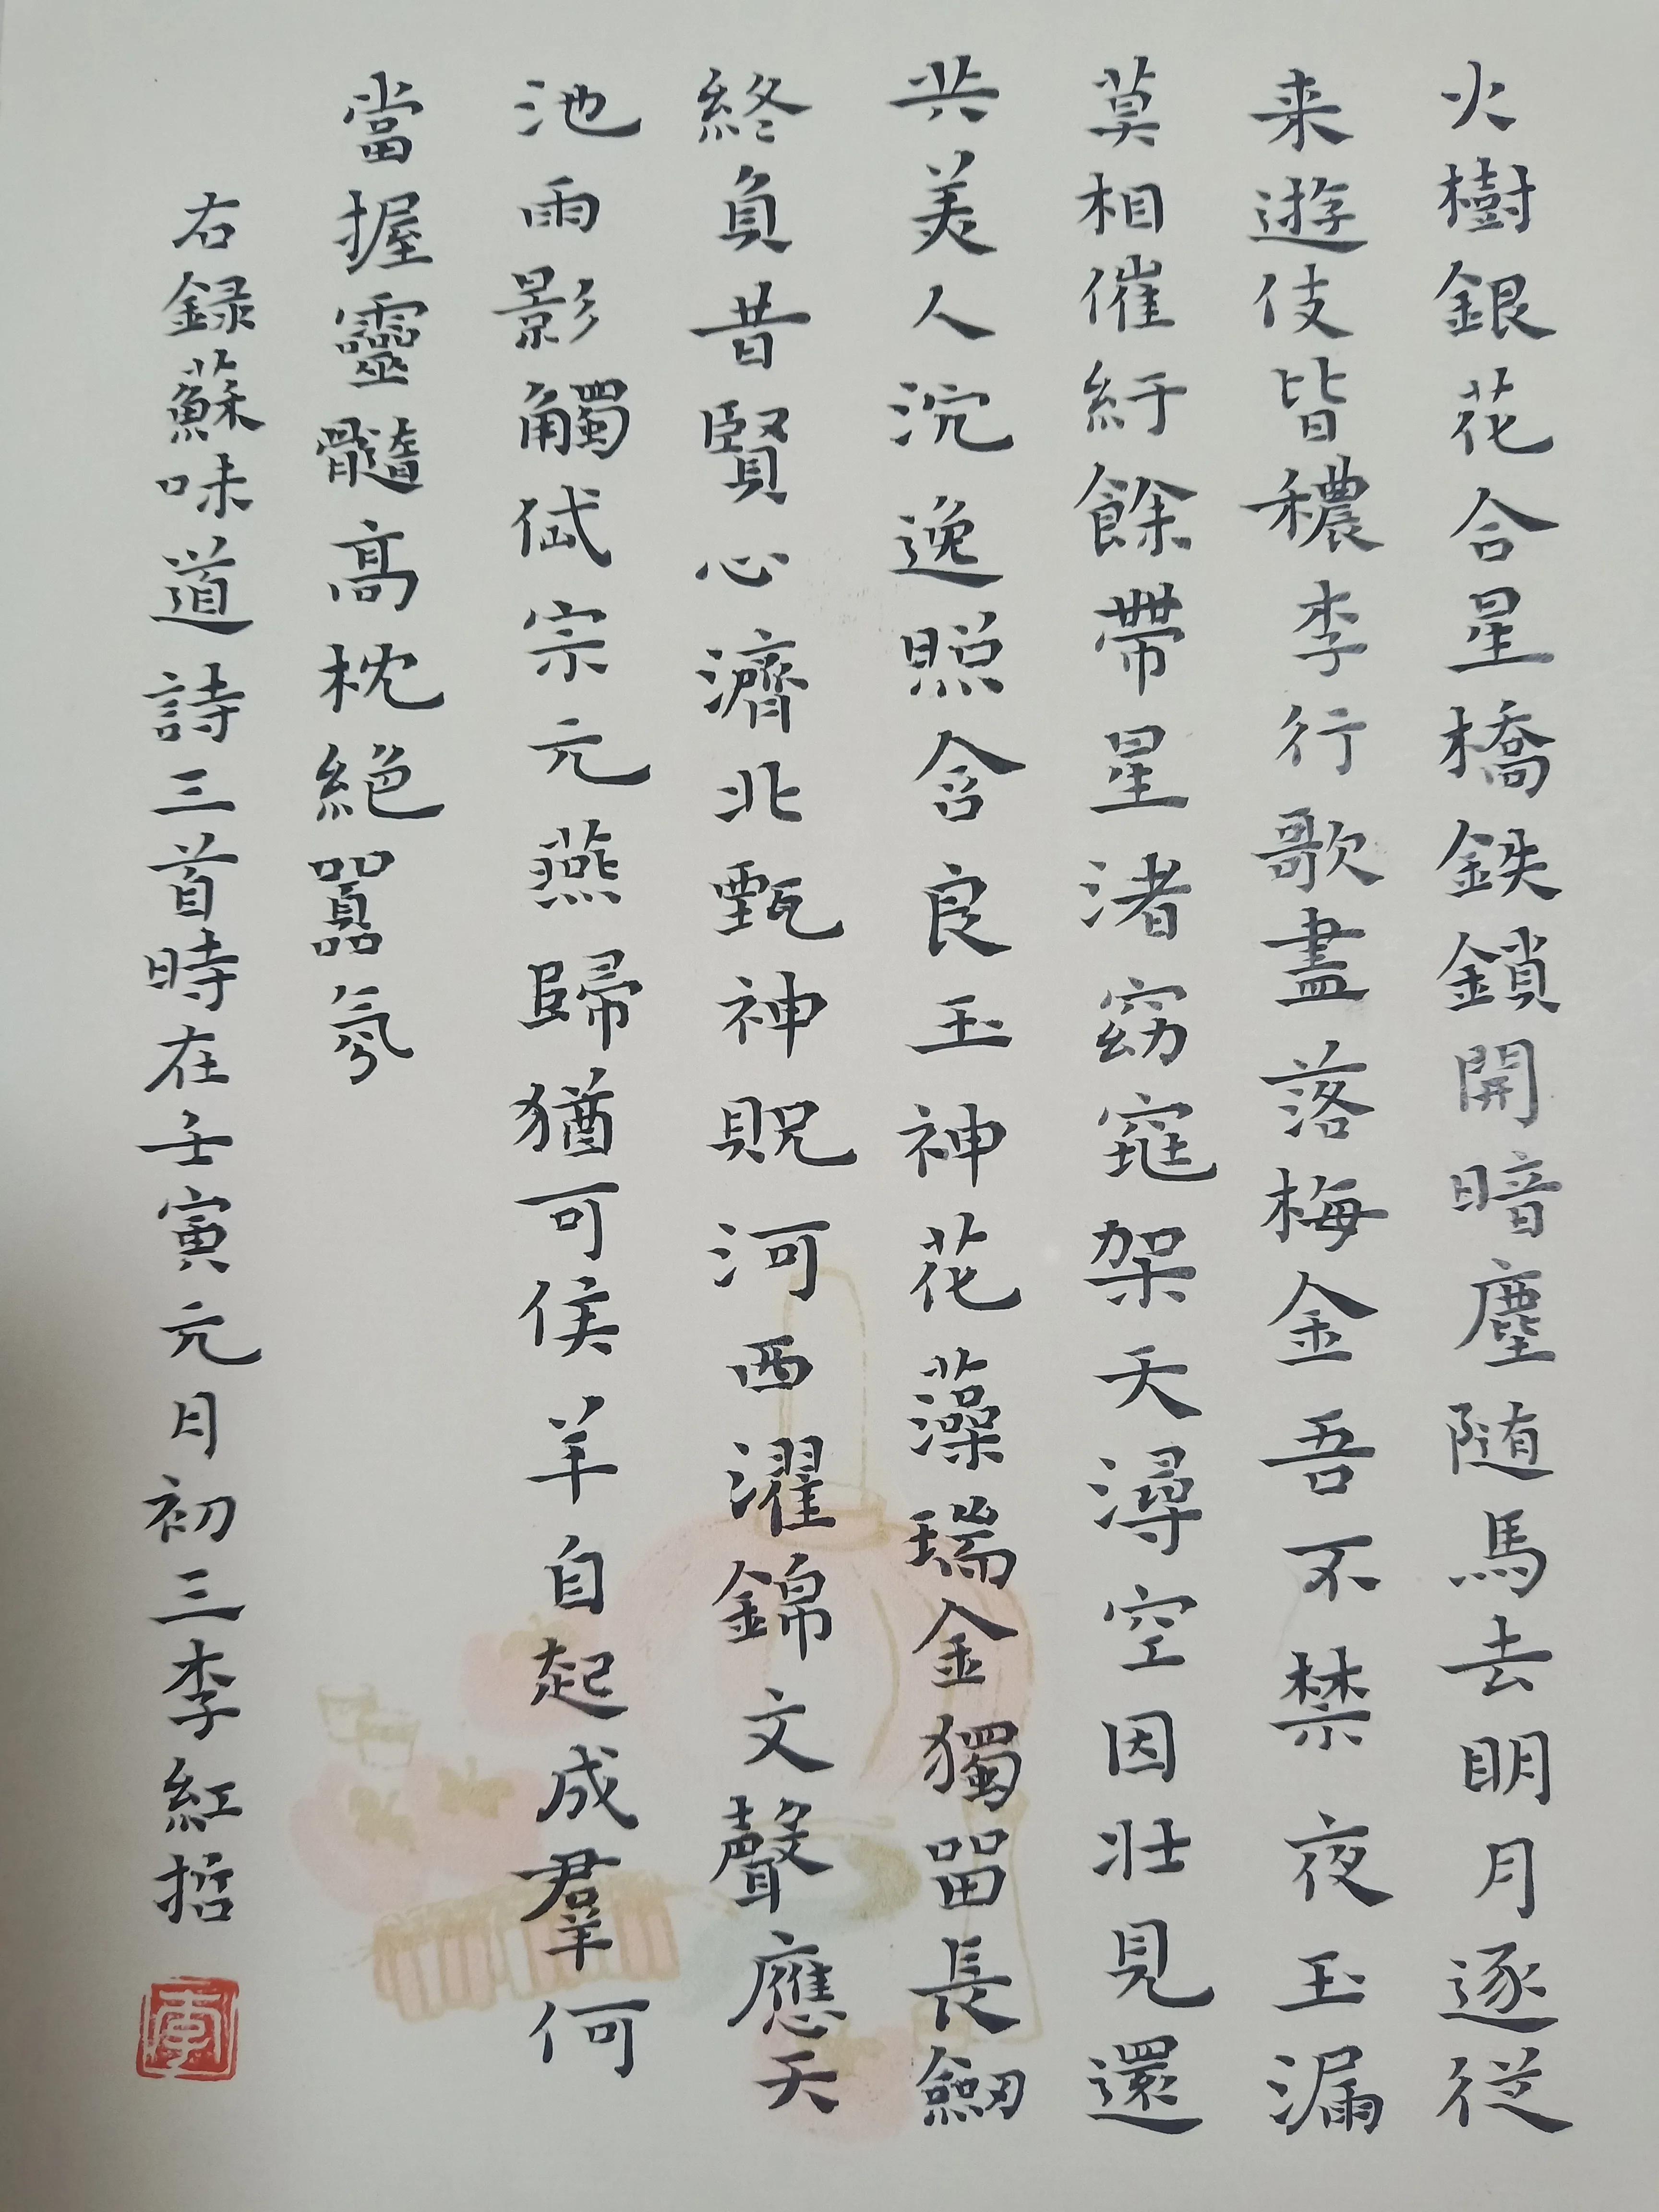 火樹銀花合星橋鉄鎖開暗塵随馬去明月逐従
来遊伎皆穠李行歌盡落梅金吾不禁夜玉漏
莫相催紆餘帶星渚窈窕架天潯空因壮見還
共美人沉逸照含良玉神花藻瑞金獨留長劒
終負昔賢心濟北甄神貺河西濯錦文聲應天
池雨影觸岱宗雲燕歸猶可候羊自起成羣何
當握靈髓高枕絕囂氛
右録蘇味道詩三首時在壬寅元月初三李紅哲
李